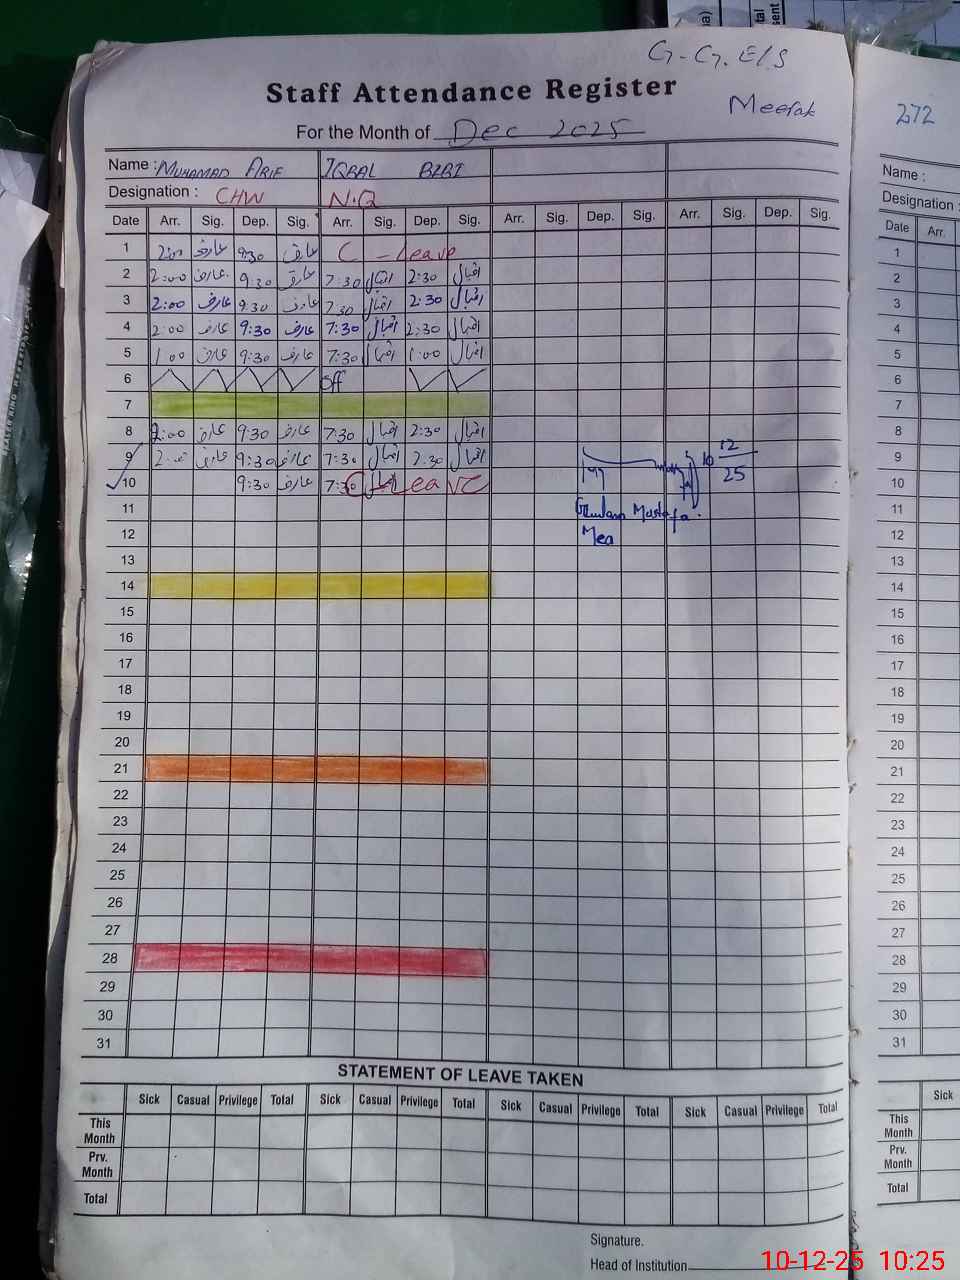 G.G.E/S
Staff Attendance Register
Meerak
For the Month of Dec 2025
272
Name : MUHAMAD ARIF IQBAL BIBI
Designation : CHW N.Q
Date Arr. Sig. Dep. Sig. Arr. Sig. Dep. Sig. Arr. Sig. Dep. Sig. Arr. Sig. Dep. Sig.
1 2:00 عارف 9:30 عارف C - Leave
2 2:00 عارف 9:30 عارف 7:30 اقبال 2:30 اقبال
3 2:00 عارف 9:30 عارف 7:30 اقبال 2:30 اقبال
4 2:00 عارف 9:30 عارف 7:30 اقبال 2:30 اقبال
5 1:00 عارف 9:30 عارف 7:30 اقبال 1:00 اقبال
6 off
7
8 2:00 عارف 9:30 عارف 7:30 اقبال 2:30 اقبال
9 2:00 عارف 9:30 عارف 7:30 اقبال 2:30 اقبال
10 9:30 عارف 7:30 اقبال C-Leave
10 12
25
Ghulam Mustafa.
Mea
11
12
13
14
15
16
17
18
19
20
21
22
23
24
25
26
27
28
29
30
31
STATEMENT OF LEAVE TAKEN
Sick Casual Privilege Total Sick Casual Privilege Total Sick Casual Privilege Total Sick Casual Privilege Total
This Month
Prv. Month
Total
Signature.
Head of Institution
Name :
Designation :
Date Arr.
1
2
3
4
5
6
7
8
9
10
11
12
13
14
15
16
17
18
19
20
21
22
23
24
25
26
27
28
29
30
31
Sick
This Month
Prv. Month
Total
10-12-25 10:25